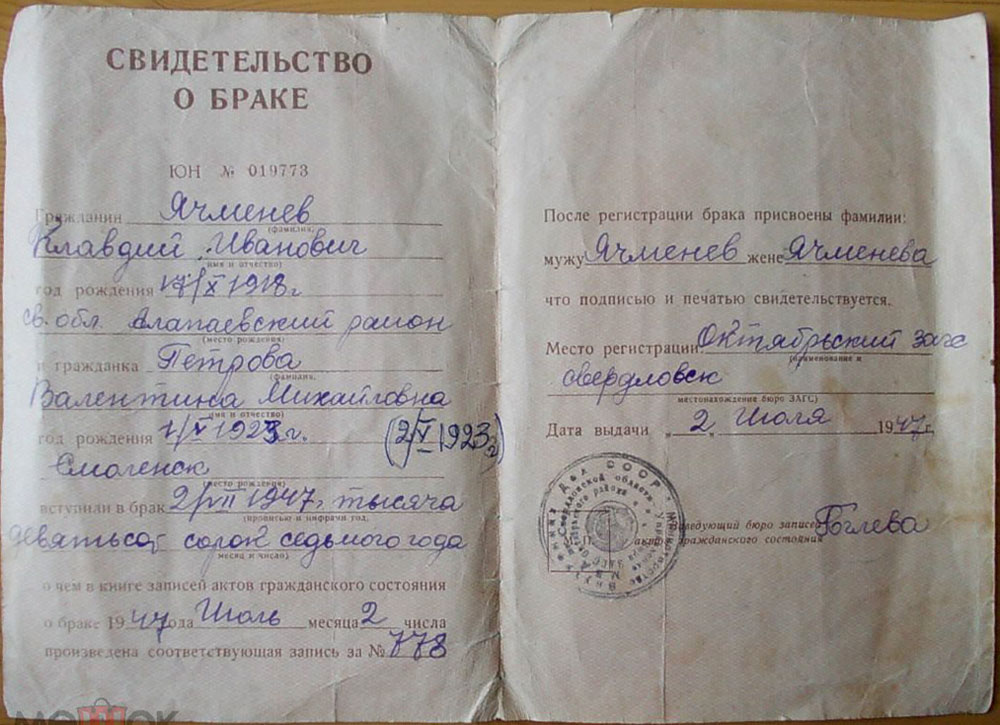 СВИДЕТЕЛЬСТВО
О БРАКЕ
ЮН № 019773
Гражданин Ячменев
(фамилия,
Клавдий Иванович
имя и отчество)
год рождения 17/X 1918 г
св. обл. Алапаевский район
(место рождения)
и гражданка Петрова
(фамилия,
Валентина Михайловна
имя и отчество)
год рождения 1/V 1923 г. (2/V 1923 г)
Смоленск
(место рождения)
вступили в брак 2/VII 1947 г. тысяча
(прописью и цифрами год,
девятьсот сорок седьмого года
месяц и число)
о чем в книге записей актов гражданского состояния
о браке 1947 года Июль месяца 2 числа
произведена соответствующая запись за № 778
После регистрации брака присвоены фамилии:
мужу Ячменев жене Ячменева
что подписью и печатью свидетельствуется.
Место регистрации Октябрьский загс
(наименование и
свердловск
местонахождение бюро ЗАГС)
Дата выдачи „2„ Июля 1947 г.
Заведующий бюро записей
актов гражданского состояния